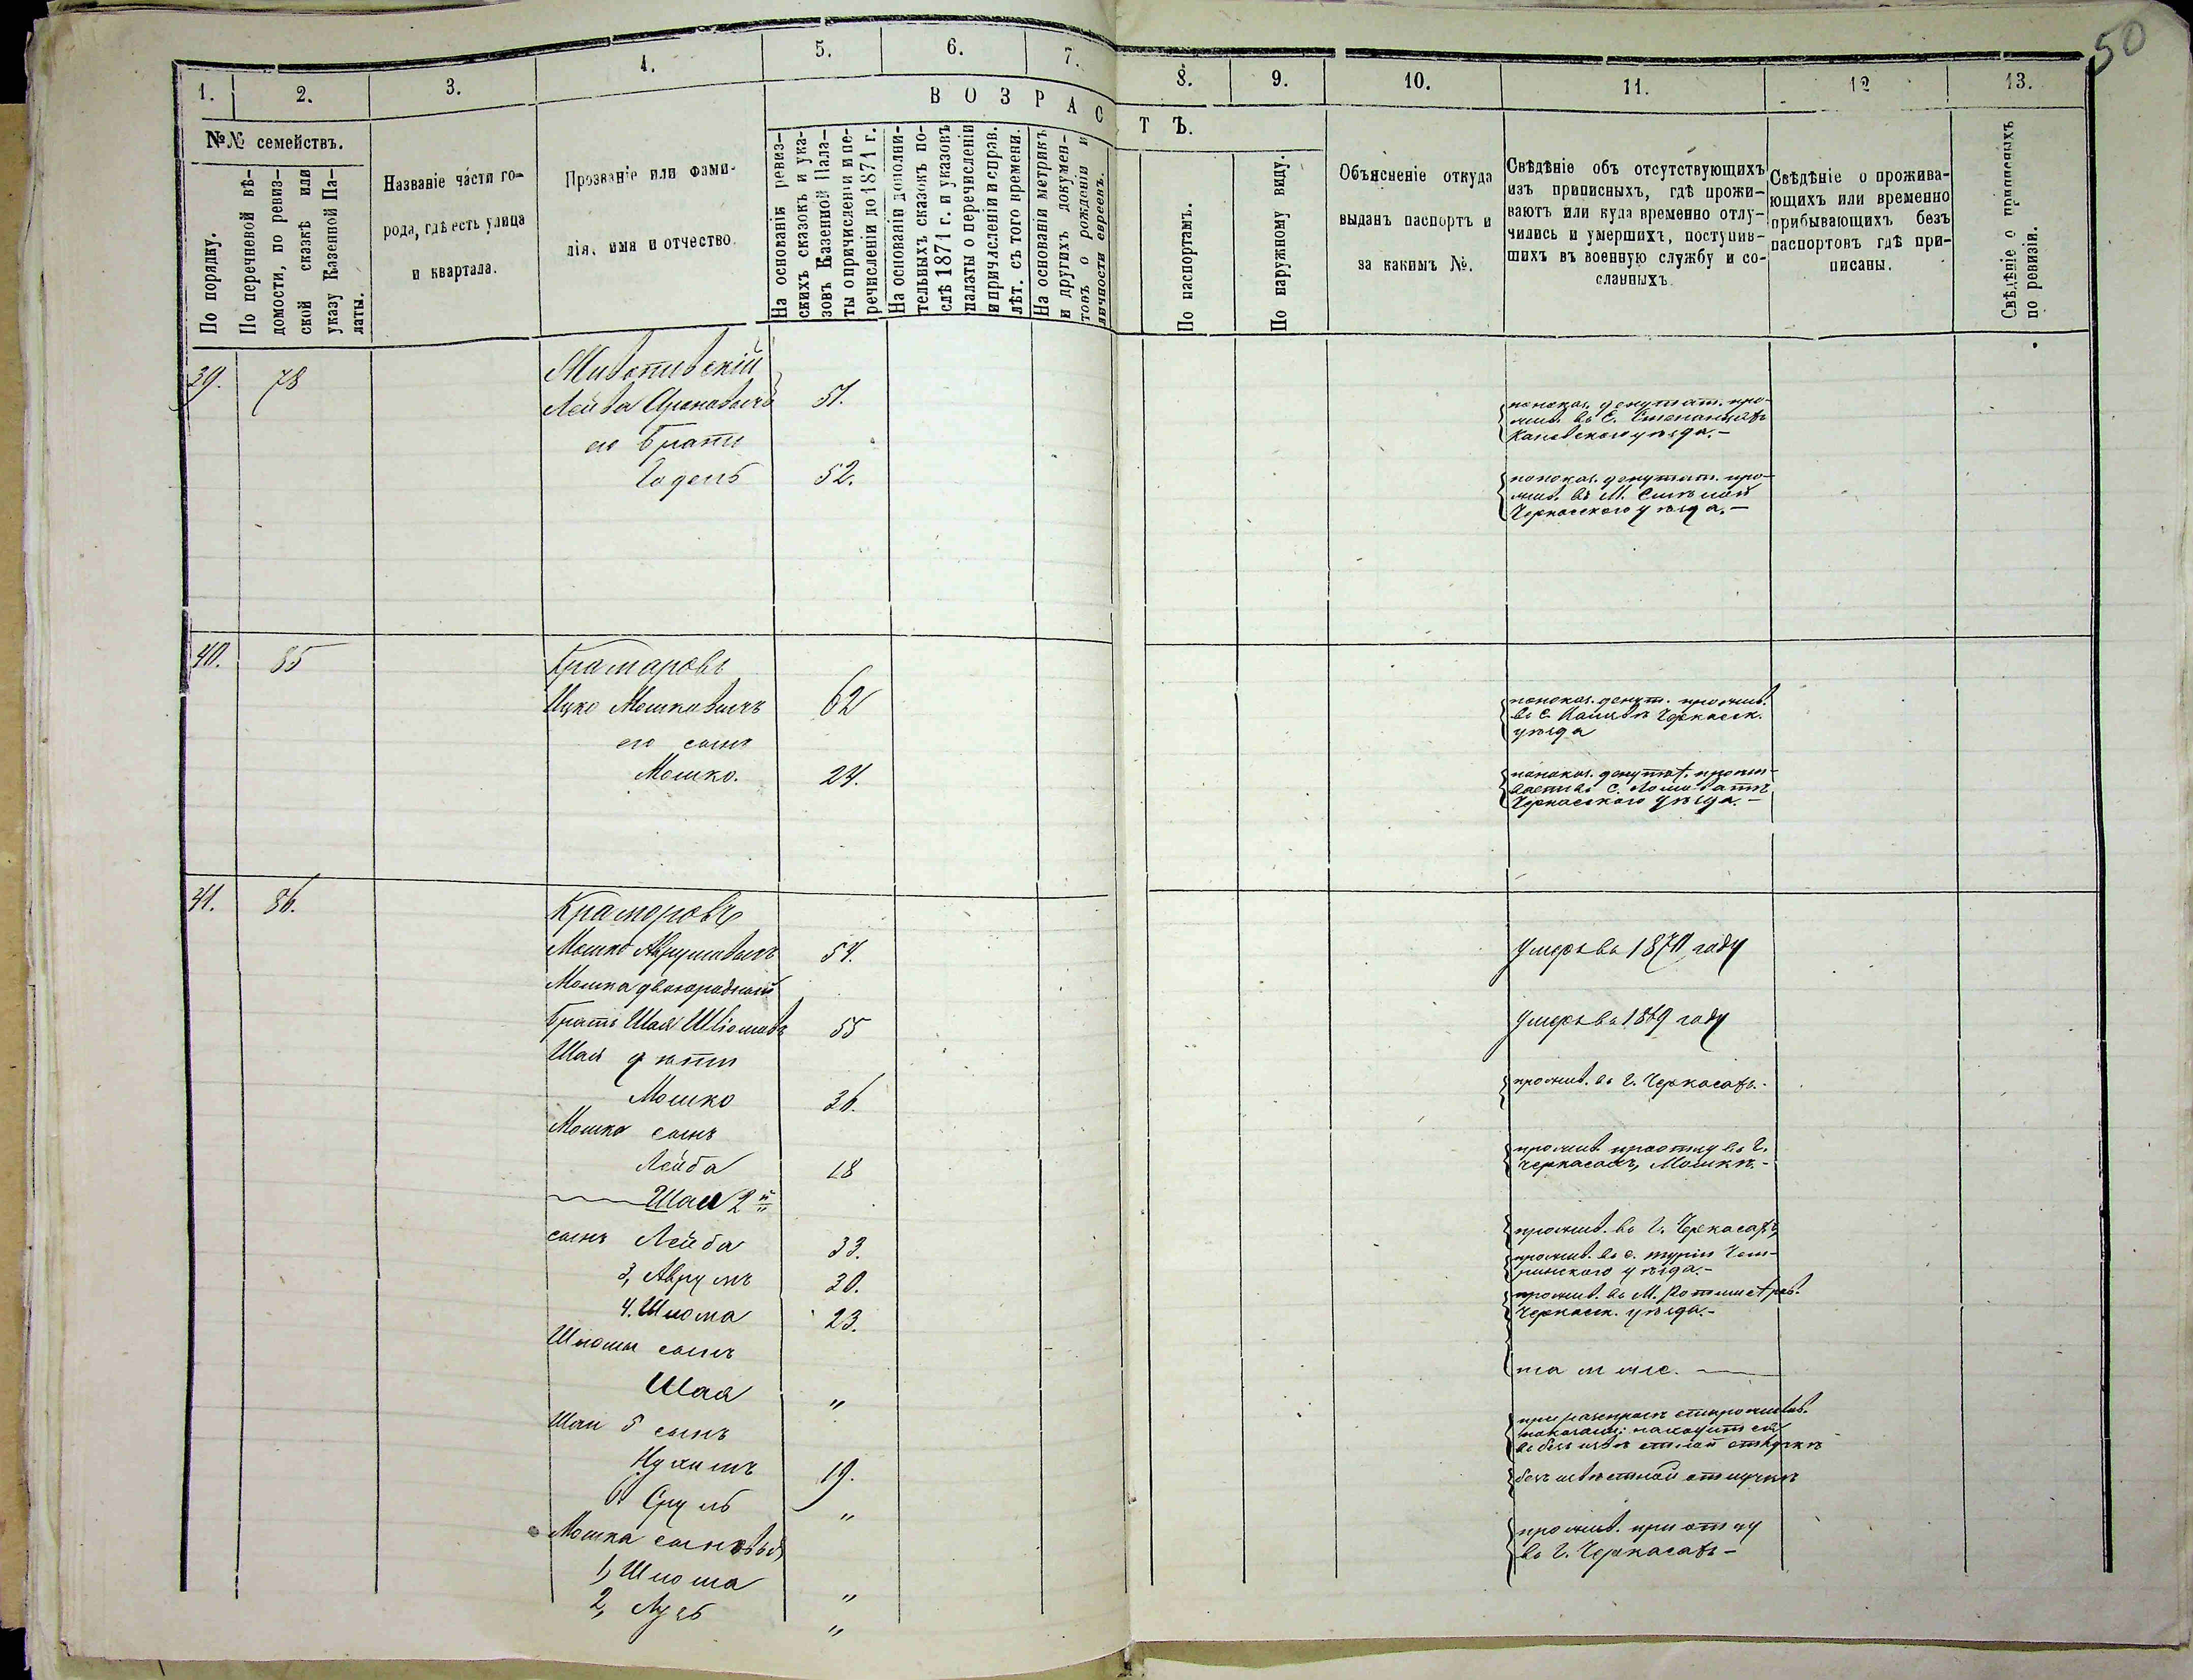 50
1.
2.
3.
4.
5.
6.
7.
8.
9.
10.
11.
12
13.
В О З Р А С Т Ъ.
№№ семействъ.
По порядку.
По перечневой вѣ-
домости, по ревиз-
ской сказкѣ или
указу Казенной Па-
латы.
Названіе части го-
рода, гдѣ есть улица
и квартала.
Прозваніе или фами-
лія, имя и отчество.
На основаніи ревиз-
скихъ сказокъ и ука-
зовъ Казенной Пала-
ты о причисленіи и пе-
речисленіи до 1871 г.
На основаніи дополни-
тельныхъ сказокъ по-
слѣ 1871 г. и указовъ
палаты о перечисленіи
и причисленіи и справ.
лѣт. съ того времени.
На основаніи метрикъ
и другихъ докумен-
товъ о рожденіи и
личности евреевъ.
По паспортамъ.
По наружному виду.
Объясненіе откуда
выданъ паспортъ и
за какимъ №.
Свѣдѣніе объ отсутствующихъ
изъ приписныхъ, гдѣ прожи-
ваютъ или куда временно отлу-
чились и умершихъ, поступив-
шихъ въ военную службу и со-
сланныхъ.
Свѣдѣніе о прожива-
ющихъ или временно
прибывающихъ безъ
паспортовъ гдѣ при-
писаны.
Свѣдѣніе о приписныхъ
по ревизіи.
39.
78
Лейба Ароновичъ
51.
по показ. депутат. про-
жив. въ С. Степанцахъ
Каневского уѣзда.—
его братъ
Годель
52.
по показ. депутат. про-
жив. въ М. Смѣлой
Черкасского уѣзда.—
40.
85
Крамаровъ
Ицко Мошковичъ
62
по показ. депут. прожив.
въ С. Черкасск.
уѣзда
его сынъ
Мошко.
24.
по показ. депутат. прожи-
ваетъ въ С. Ломоватѣ
Черкасского уѣзда.—
41.
86.
Крамаровъ
Мошко Аврумовичъ
54.
Умеръ въ 1870 году
Мошка двоюродный
братъ Шая Шліомовъ
55
Умеръ въ 1869 году
Шаи дѣти
Мошко
36.
прожив. въ г. Черкасахъ.
Мошка сынъ
Лейба
18
прожив. при отцу въ г.
Черкасахъ, Мошкѣ.—
Шаи 2й
сынъ Лейба
33.
прожив. въ г. Черкасахъ
3, Аврумъ
30.
прожив. въ с. Чиги-
ринского уѣзда.—
4. Шлома
23.
прожив. въ М.
Черкасск. уѣзда.—
Шломы сынъ
Шая
"
тамъ же.
Шаи 5 сынъ
Нухимъ
19.
находится
въ безъизвѣстной отлучкѣ
6 Сруль
"
безъизвѣстной отлучкѣ
Мошка сыновья
1, Шлома
"
прожив. при отцу
въ г. Черкасахъ—
2,
"